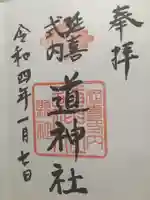 奉拝
延喜
式内
道神社
令和四年一月七日